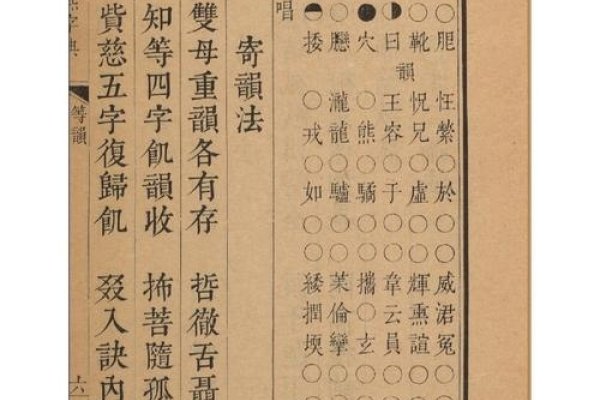 ○縈○於○○威涒冤○
○靴怳兄○虛○○輝熏諠○
◑曰韻王容○于○○韋云員○
●穴○熊○驕○○攜○玄○
○瀧龍○驢○○倫攣○
捼○戎○如○○緌撋堧○
唱
寄韻法
雙母重韻各有存 哲徹舌聶
知等四字飢韻收 抪菩隨孤
貲慈五字復歸飢 叕入訣內
字典 等韻 六